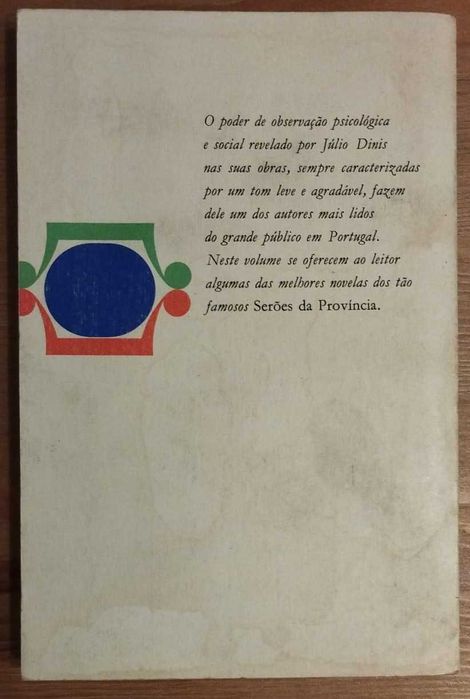 O poder de observação psicológica
e social revelado por Júlio Dinis
nas suas obras, sempre caracterizadas
por um tom leve e agradável, fazem
dele um dos autores mais lidos
do grande público em Portugal.
Neste volume se oferecem ao leitor
algumas das melhores novelas dos tão
famosos Serões da Província.